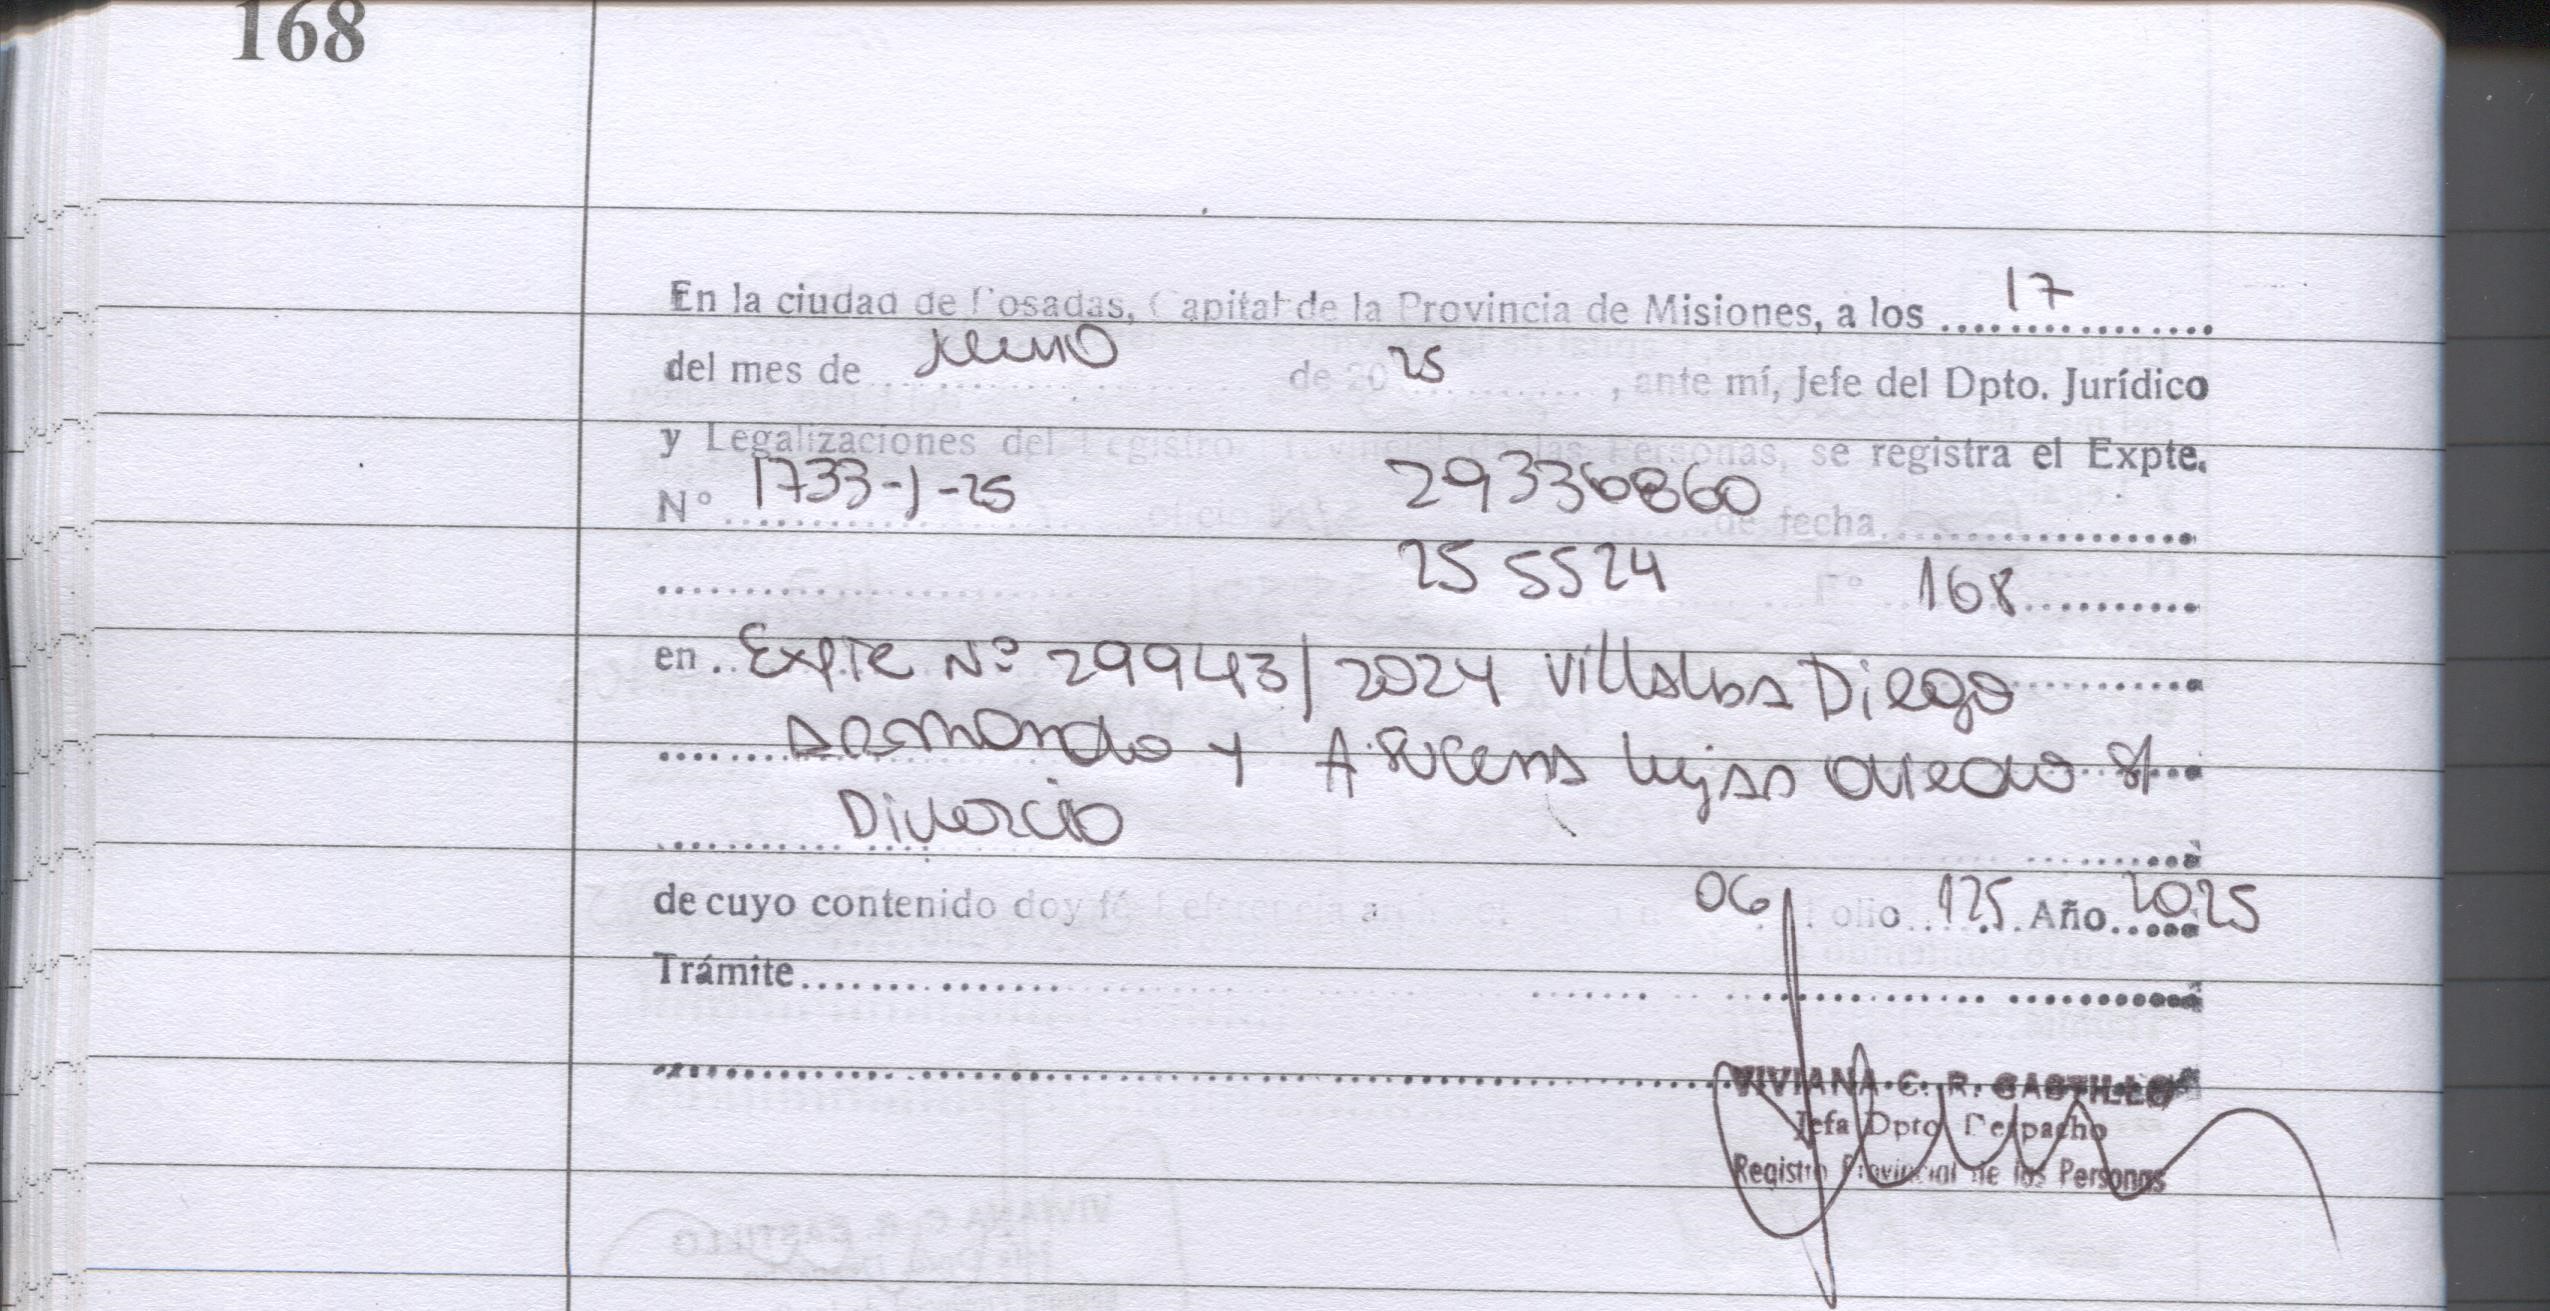 168
En la ciudad de Posadas, Capital de la Provincia de Misiones, a los 17
del mes de Junio de 2025, ante mí, Jefe del Dpto. Jurídico
y Legalizaciones del Registro Provincial de las Personas, se registra el Expte.
N° 1733-J-25 29336860 de fecha
25 5524 N° 168
en Expte Nº 29943/2024 Villalba Diego
Armando y Azucena Lujan Oviedo s/
Divorcio
de cuyo contenido doy fé Referencia 06 Folio 125 Año 2025
Trámite
VIVIANA C. R. CASTILLO
Jefa Dpto Despacho
Registro Provincial de las Personas